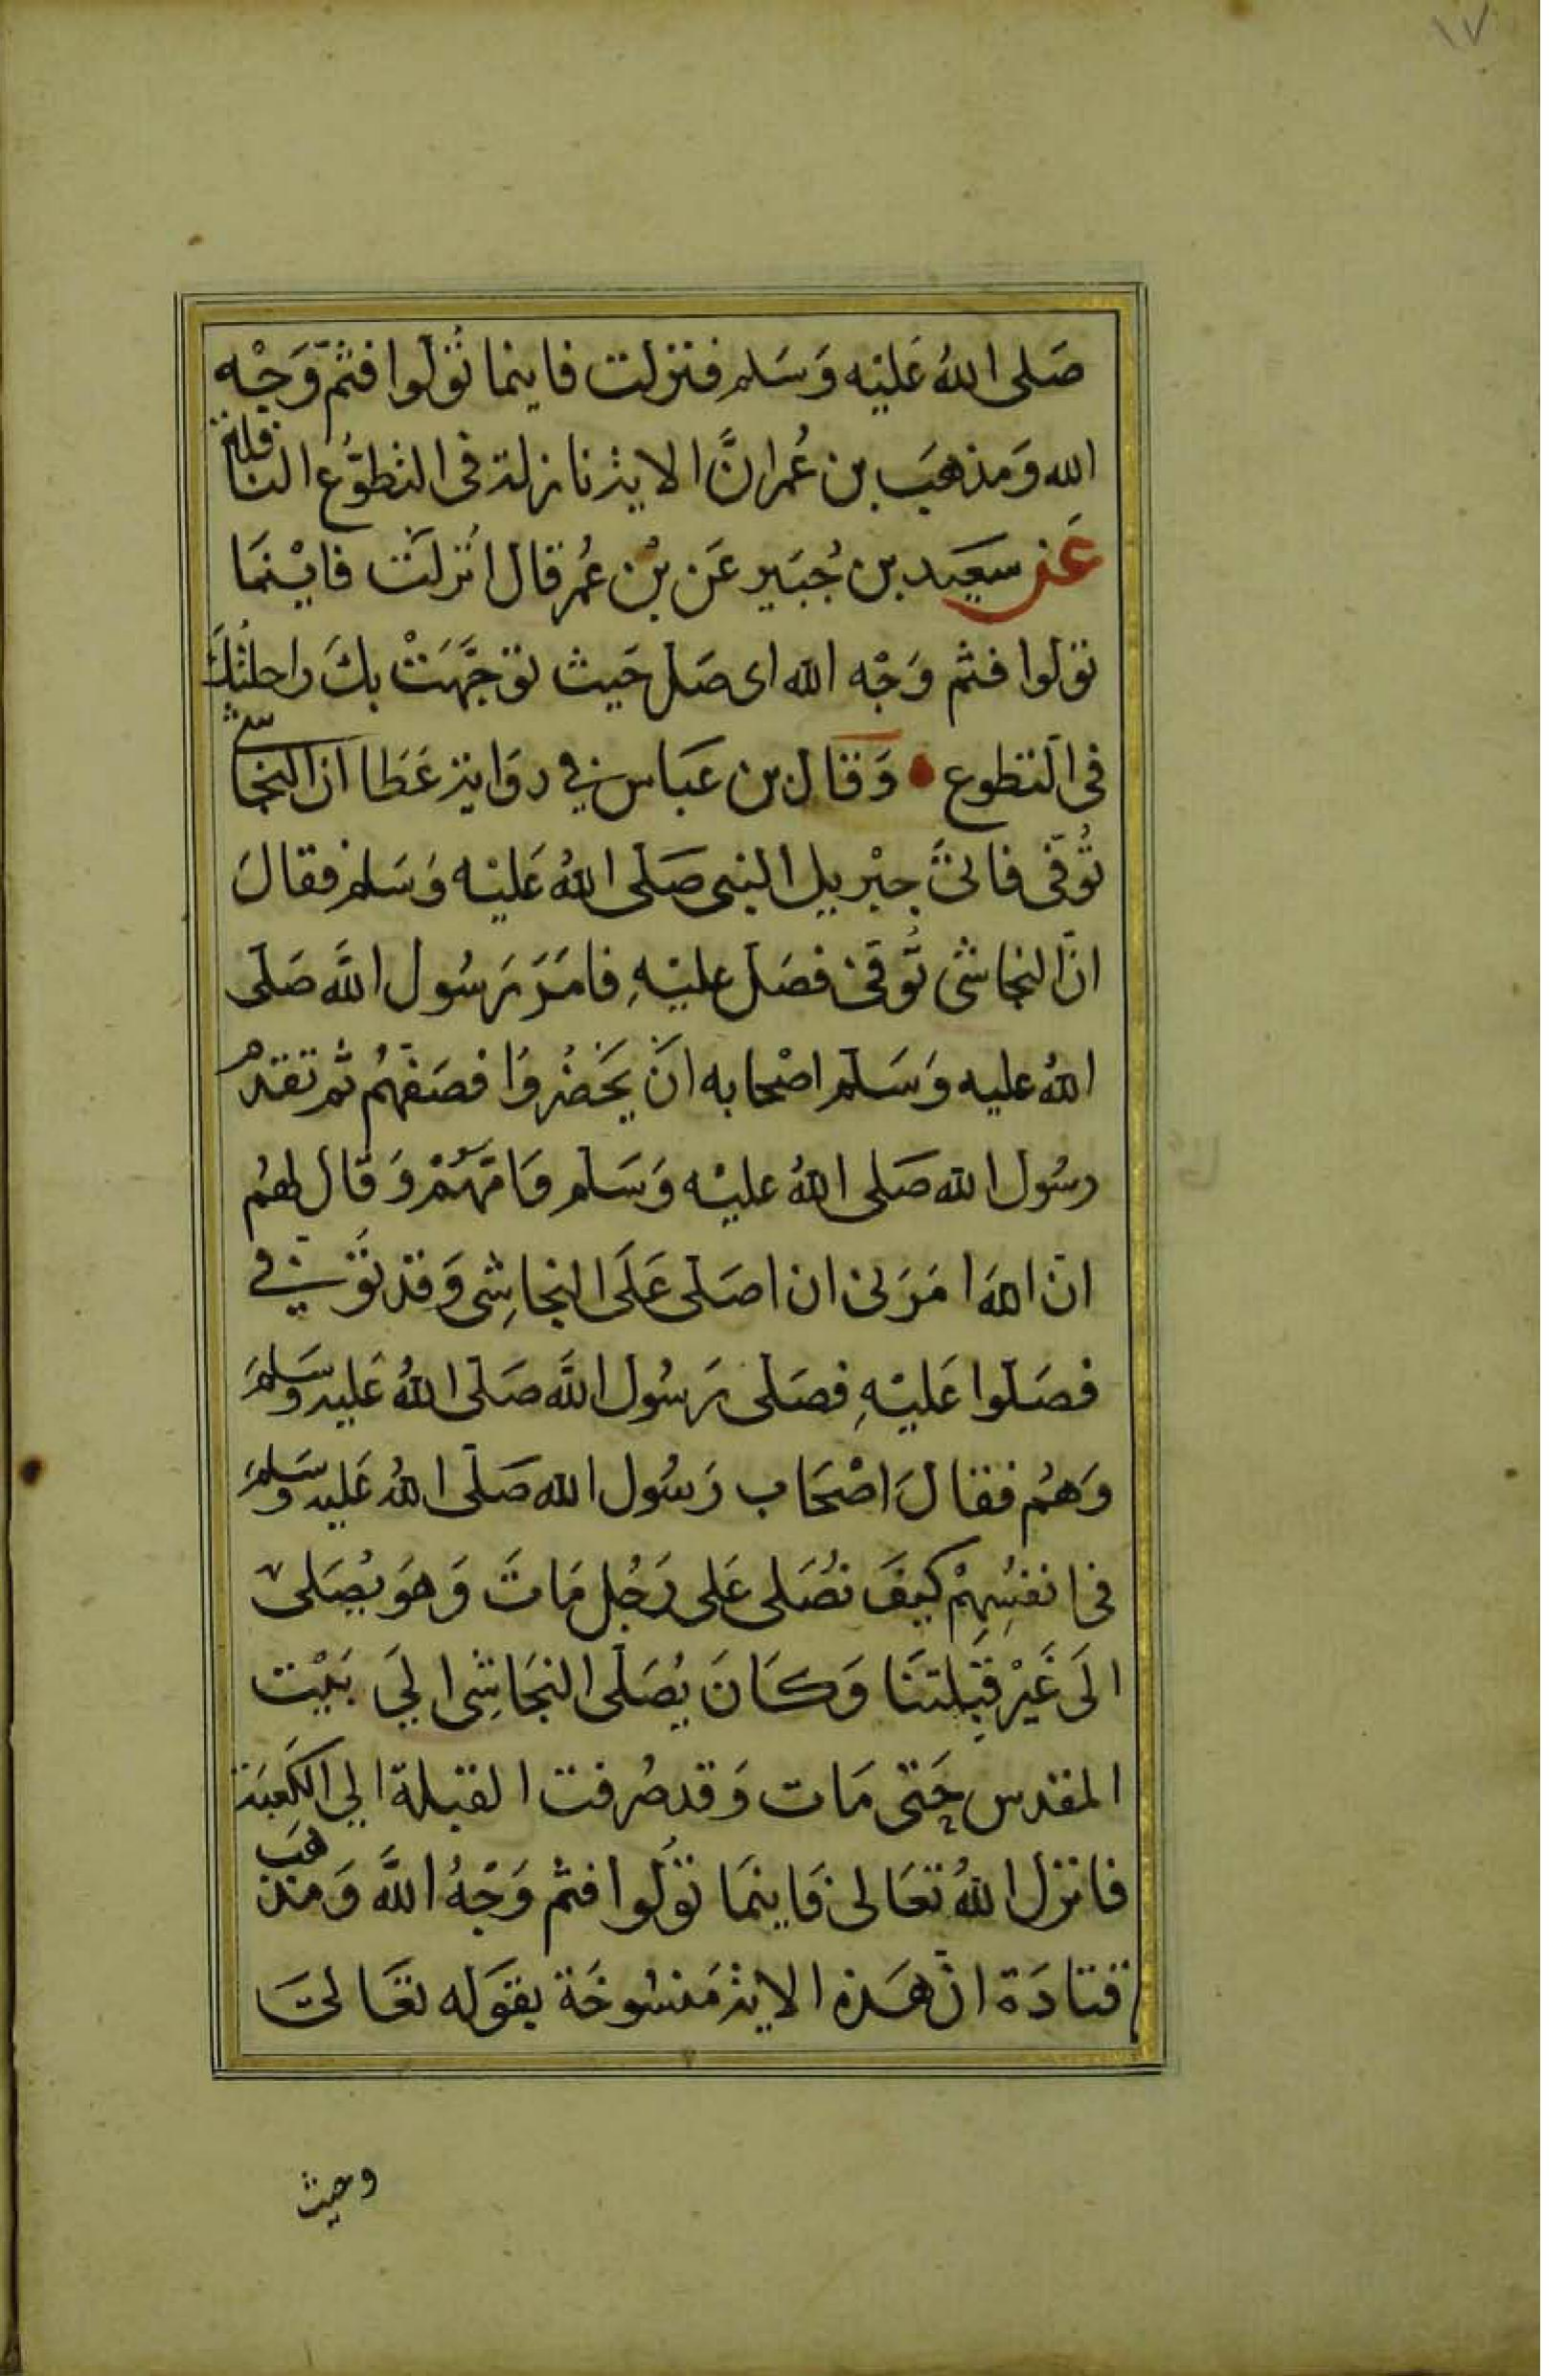 ١٧
صَلى اللهُ عَليْه وَسَلم فنزلت فاينما تُوَلوا فثمّ وَجْه
الله وَمذهَب بن عُمر انَّ الاية نازلة في التطوّع النافلة
عَن سَعيَد بن جُبَير عَن بْن عُمر قال انزلَت فايْنمَا
تولوا فثم وَجْه الله اى صَل حَيث توَجَّهَتْ بكَ راحلتُكَ
في التطوع وَقال بن عَباس في روَاية عَطَا ان النجاشي
تُوُفّى فاتىَ جبْريل النبى صَلى اللهُ عَليْه وَسَلم فقالَ
انّ النجاشى تُوفى فصَل عليْهِ فامَرَ رَسُول اللَّه صَلى
اللهُ عليه وَسَلم اصْحابه انَ يَحَضُروُا فصَفّهُم ثم تقدم
رسُول الله صَلى اللهُ عليْه وَسَلم وَامّهُمْ وَقال لهُم
انّ اللهَ امَرَنى ان اصَلى عَلَى النجاشِى وَقد تُوفي
فصَلوا عَليْهِ فصَلى رَسُول اللَّه صَلى اللهُ عَليه وَسَلمَ
وَهُم فقالَ اصْحَاب رَسُول الله صَلى اللهُ عَليه وسَلمَ
في انفسُهِمْ كيفَ نُصَلى عَلى رَجُل مَاتَ وَهوَ يُصَلى
الَى غَيْر قِبَلتنَا وَكَانَ يُصَلى النجَاشِى الىَ بَيْت
المقدس حَتى مَات وَقد صُرفت القبلة الي الكَعبَة
فانزل اللهُ تعَالى فَاينمَا تُوَلُوا فثم وَجْهُ اللَّه وَمذهَب
قتادَة انّ هَذه الاية مَنسُوخَة بقوَله تعَالىَ
وحيث